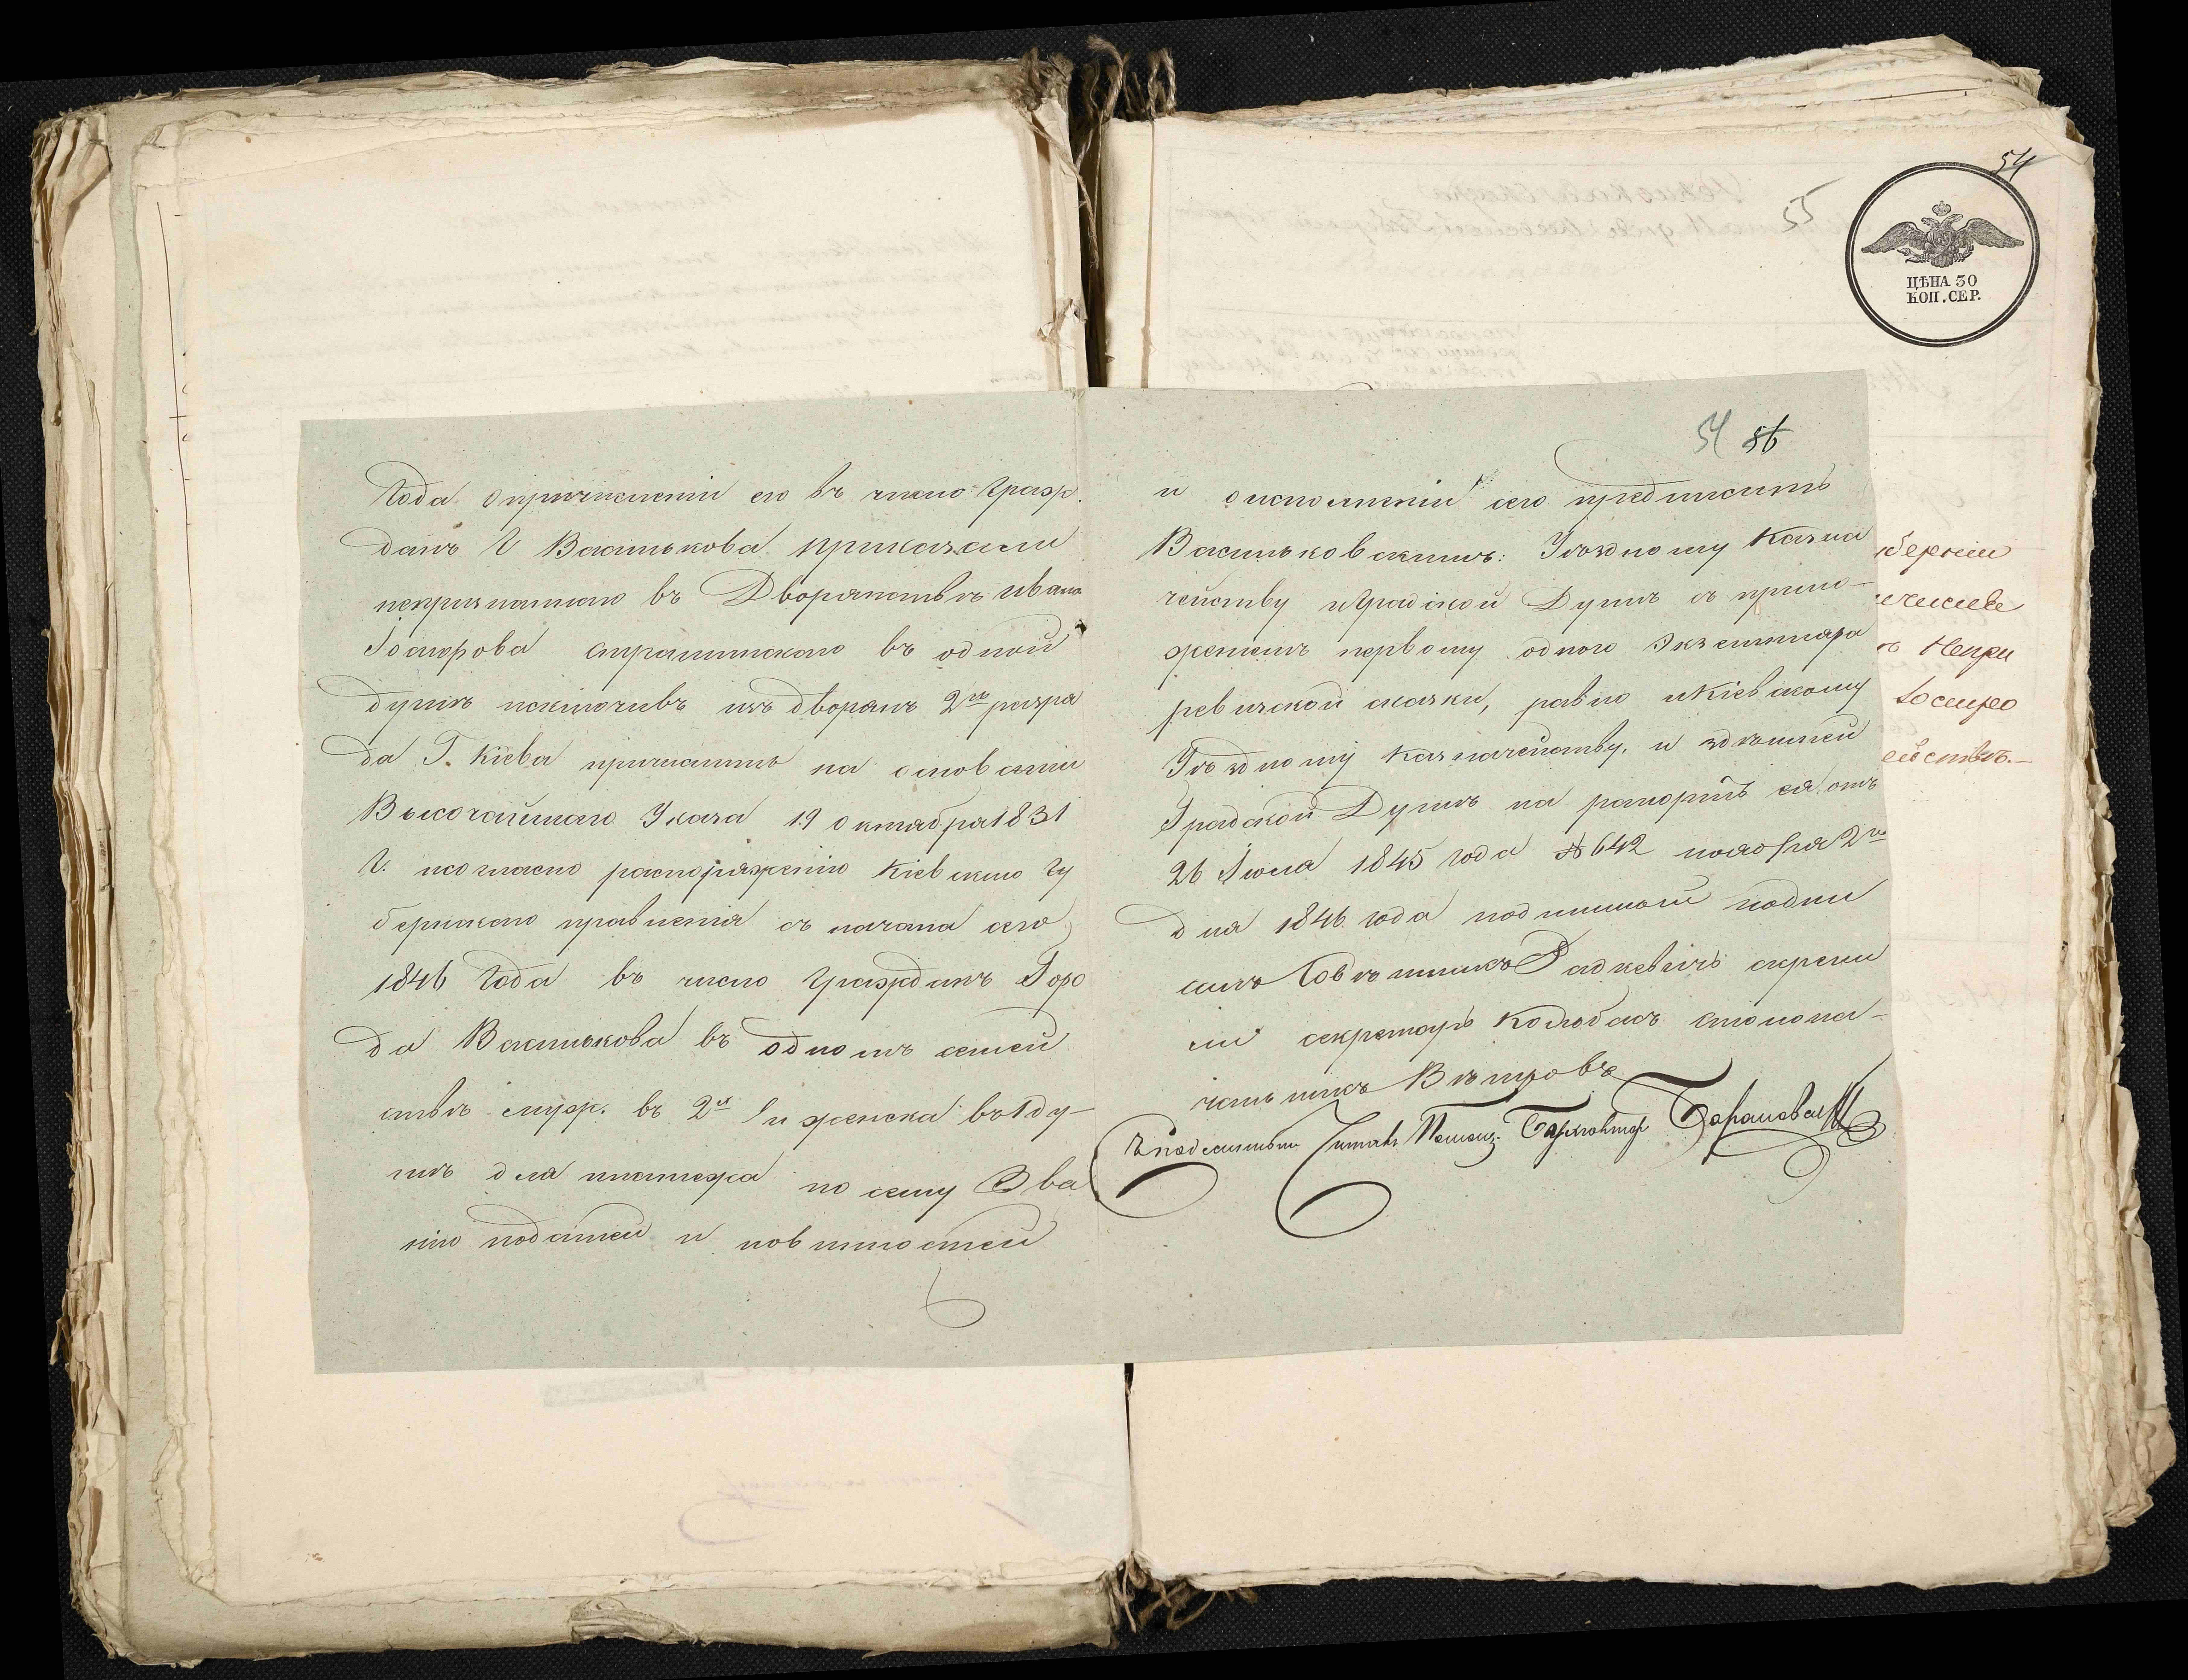 года о причисленіи его въ число граж
данъ г Василькова приказали
непризнаннаго въ Дворянствѣ Ивана
Іосифова въ одной
душѣ исключивъ изъ дворянъ 2го разря
да Г. Кіева причислить на основаніи
Высочайшаго Указа 19 октября 1831
г. и согласно распоряженію Кіевскаго гу
бернскаго правленія съ начала сего
1846 года въ число гражданъ Горо
да Василькова въ одномъ семей
ствѣ муж. въ 2й и женска въ 1 ду-
шѣ для платежа по сему Зва
нію податей и повинностей
54 56
и о исполненіи сего предписать
Васильковскимъ: Уѣздному Казна
чейству и Градской Думѣ съ прило-
женіемъ первому одного Экземпляра
ревизской сказки, равно и Кіевскому
Уѣздному Казначейству, и здѣшней
Градской Думѣ на рапортъ ея отъ
26 Іюля 1845 года № 642 ноября 2го
дня 1846 года подлинной подпи
салъ Совѣтникъ Радкевичъ скрепи
ли секретарь столона-
чальникъ Вѣтровъ
Читалъ Помощ. Бухгалтер Барановскій
54
55
ЦѢНА 30
КОП. СЕР.
берніи
Непри
Іосифо
ействѣ.—